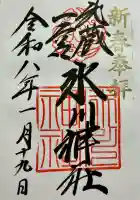 新春参拝
武蔵
一宮
氷川神社
令和八年一月十九日